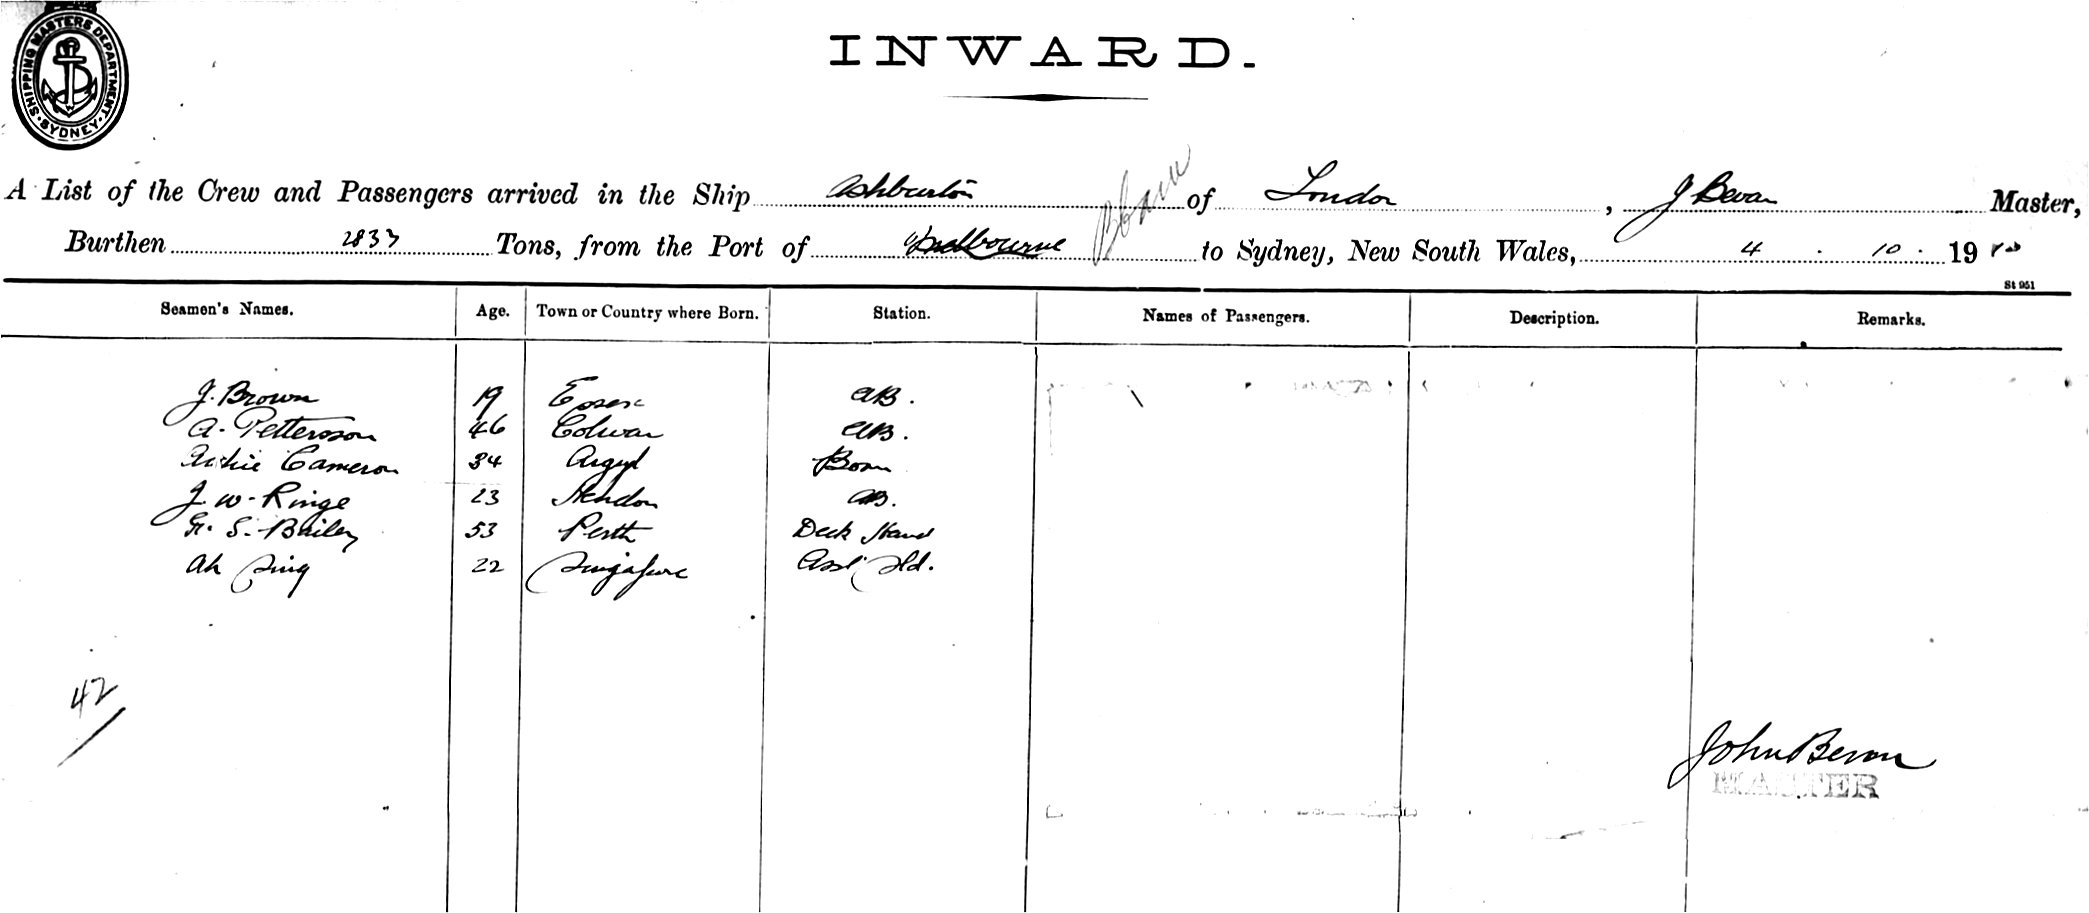 SHIPPING MASTERS DEPARTMENT. SYDNEY.
INWARD.
A List of the Crew and Passengers arrived in the Ship Ashburton of London, J Bevan Master,
Burthen 2833 Tons, from the Port of Melbourne to Sydney, New South Wales, 4 . 10 . 19
St 951
Seamen's Names. Age. Town or Country where Born. Station. Names of Passengers. Description. Remarks.
J. Brown 19 Essex AB.
A. Petterson 46 AB.
Archie Cameron 34 Argyl Bosn
J. W. Ringe 23 Hendon AB.
S. Bailey 53 Perth Deck Hand
Ah Sing 22 Singapure Asst Std.
42
John Bevan
MASTER